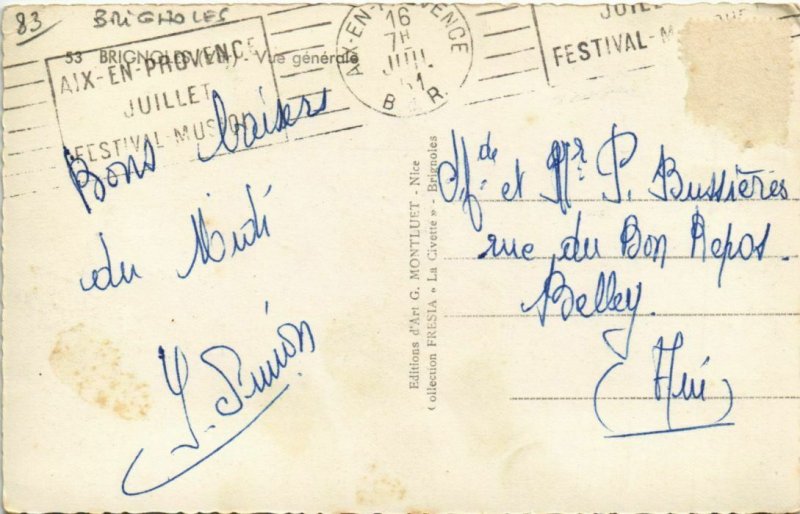 83 BRIGNOLES
53 BRIGNOLES (Var) - Vue générale
AIX-EN-PROVENCE
JUILLET
FESTIVAL-MUSICAL
AIX-EN-PROVENCE
16
7H
JUIL
51
B R.
JUIL
FESTIVAL-M
Bons baisers
du Midi
Editions d'Art G. MONTLUET - Nice
Collection FRESIA « La Civette » - Brignoles
Mde et Mr. P. Bussières
rue du Bon Repos.
Belley.
(Ain)